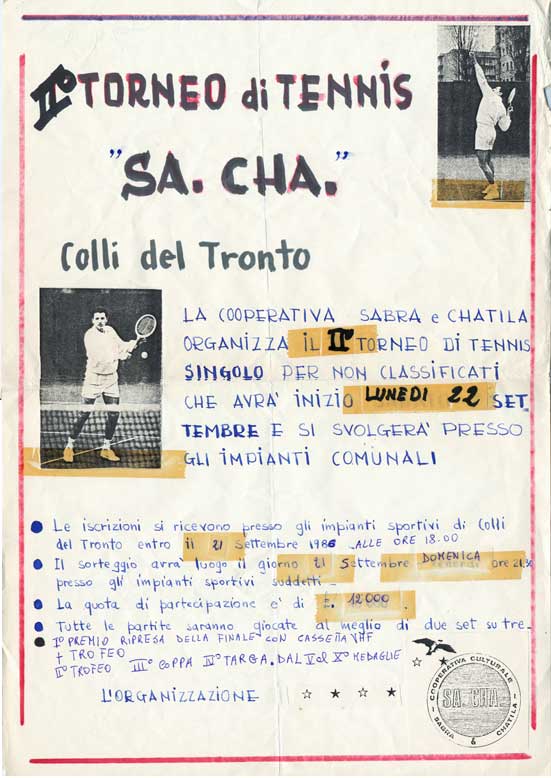 IIº TORNEO di TENNIS
"SA. CHA."
Colli del Tronto
LA COOPERATIVA SABRA e CHATILA
ORGANIZZA IL IIº TORNEO DI TENNIS
SINGOLO PER NON CLASSIFICATI
CHE AVRA' INIZIO LUNEDI 22 SET
TEMBRE E SI SVOLGERA' PRESSO
GLI IMPIANTI COMUNALI
Le iscrizioni si ricevono presso gli impianti sportivi di Colli
del Tronto entro il 21 Settembre 1986 ALLE ORE 18.00
Il sorteggio avra' luogo il giorno 21 Settembre DOMENICA ore 21.30
presso gli impianti sportivi suddetti -
La quota di partecipazione e' di £. 12000.
Tutte le partite saranno giocate al meglio di due set su tre -
Iº PREMIO RIPRESA DELLA FINALE CON CASSETTA VHF
+ TROFEO
IIº TROFEO IIIº COPPA IVº TARGA. DAL V al Xº MEDAGLIE
L'ORGANIZZAZIONE
COOPERATIVA CULTURALE
SA. CHA.
SABRA 6 CHATILA